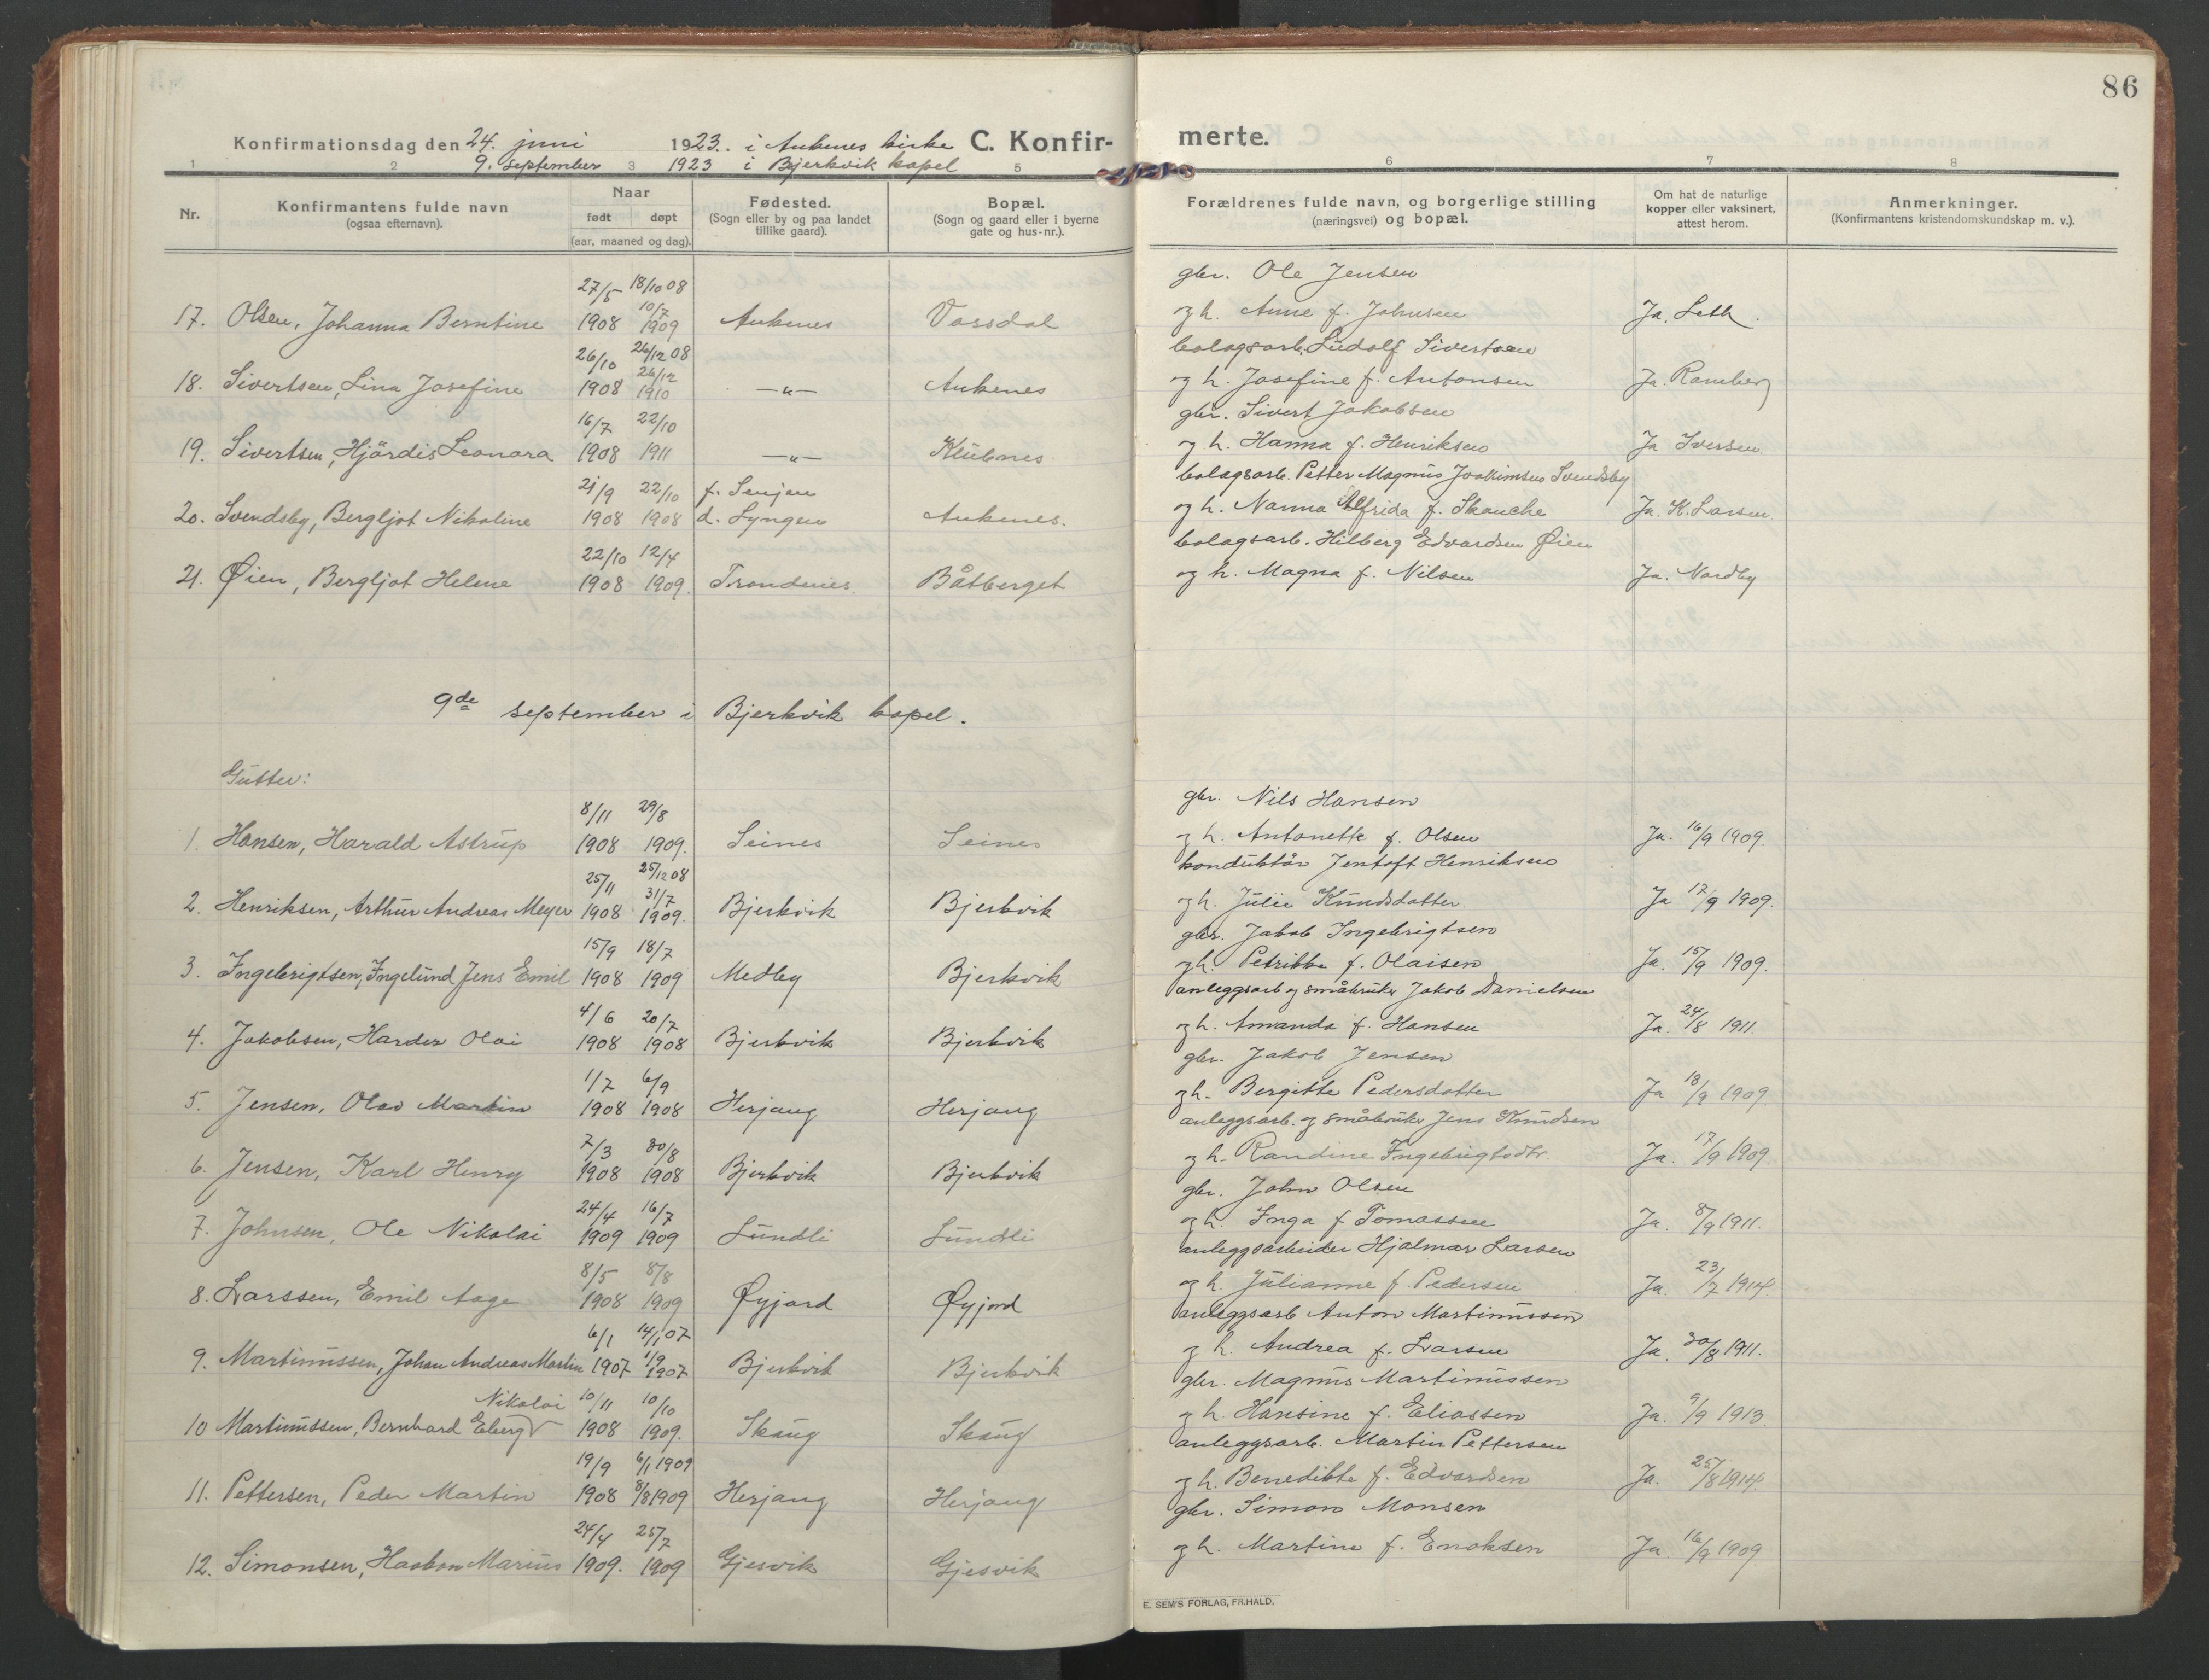 86
Konfirmationsdag den 24. juni 1923. i Ankenes kirke C. Konfirmerte.
9. september 1923 i Bjerkvik kapel
1 2 3 5 6 7 8
Nr.
Konfirmantens fulde navn
(ogsaa efternavn).
Naar
født døpt
(aar, maaned og dag).
Fødested.
(Sogn eller by og paa landet
tillike gaard).
Bopæl.
(Sogn og gaard eller i byerne
gate og hus-nr.).
Forældrenes fulde navn, og borgerlige stilling
(næringsvei) og bopæl.
Om hat de naturlige
kopper eller vaksinert,
attest herom.
Anmerkninger.
(Konfirmantens kristendomskundskap m. v.).
27/5 18/10 08 10/7 gbr. Ole Jensen
17. Olsen, Johanna Berntine 1908 1909 Ankenes Vassdal og h. Anne f. Johnsen Ja. Leth.
26/10 26/12 08 26/12 bolagsarb. Ludolf Sivertsen
18. Sivertsen, Lina Josefine 1908 1910 —"— Ankenes og h. Josefine f. Antonsen Ja. Ramberg
16/7 22/10 gbr. Sivert Jakobsen
19. Sivertsen, Hjördis Leonora 1908 1911 —"— Klubnes og h. Hanna f. Henriksen Ja Iversen
21/9 22/10 f. Senjen bolagsarb. Petter Magnus Joakimsen Svendsby
20. Svendsby, Bergljot Nikoline 1908 1908 d. Lyngen Ankenes. og h. Nanna Alfrida f. Skanche Ja. K. Larsen
22/10 12/4 bolagsarb. Hilberg Edvardsen Øien
21. Øien, Bergljot Helene 1908 1909. Trondenes Båtberget og h. Magna f. Nilsen Ja. Nordby
9de september i Bjerkvik kapel.
Gutter:
8/11 29/8 gbr. Nils Hansen
1. Hansen, Harald Astrup 1908 1909. Seines Seines og h. Antonette f. Olsen Ja. 16/9 1909.
25/11 25/12 08 31/7 konduktör Jentoft Henriksen
2. Henriksen, Arthur Andreas Meyer 1908 1909. Bjerkvik Bjerkvik og h. Julie Knudsdatter Ja 17/9 1909.
15/9 18/7 gbr. Jakob Ingebrigtsen
3. Ingebrigtsen, Ingelund Jens Emil 1908 1909 Medby Bjerkvik og h. Petrikke f. Olaisen Ja. 15/9 1909.
4/6 20/7 anleggsarb og småbruker Jakob Danielsen
4. Jakobsen, Harder Olai 1908 1908 Bjerkvik Bjerkvik og h. Amanda f. Hansen Ja. 24/8 1911.
1/7 6/9 gbr. Jakob Jensen
5. Jensen, Olav Martin 1908 1908 Herjang Herjang og h. Bergitte Pedersdatter Ja 18/9 1909
7/3 30/8 anleggsarb. og småbruker Jens Knudsen
6. Jensen, Karl Henry 1908 1908 Bjerkvik Bjerkvik og h. Randine Ingebrigtsdtr. Ja. 17/9 1909.
24/4 16/7 gbr. John Olsen
7. Johnsen, Ole Nikolai 1909 1909 Lundli Lundli og h. Inga f Tomassen Ja. 8/9 1911.
8/5 8/8 anleggsarbeider Hjalmar Larsen
8. Larssen, Emil Aage 1908 1909 Øyjord Øyjord og h. Julianne f. Pedersen Ja. 23/7 1914
6/1 14/1 07 1/9 anleggsarb Anton Martinussen
9. Martinussen, Johan Andreas Martin 1907 1907 Bjerkvik Bjerkvik og h. Andrea f. Larsen Ja. 30/8 1911.
Nikolai 10/11 10/10 gbr. Magnus Martinussen
10 Martinussen, Bernhard Eberg 1908 1909. Skaug Skaug og h. Hansine f. Eliassen Ja. 9/9 1913.
19/9 6/1 1909 anleggsarb. Martin Pettersen
11. Pettersen, Peder Martin 1908 8/8 1909 Herjang Herjang og h. Benedikte f. Edvardsen Ja. 25/8 1914.
24/4 25/7 gbr. Simon Monsen
12. Simonsen, Haakon Marius 1909. 1909 Gjesvik Gjesvik og h. Martine f. Enoksen Ja. 16/9 1909
E. SEM'S FORLAG, FR.HALD.